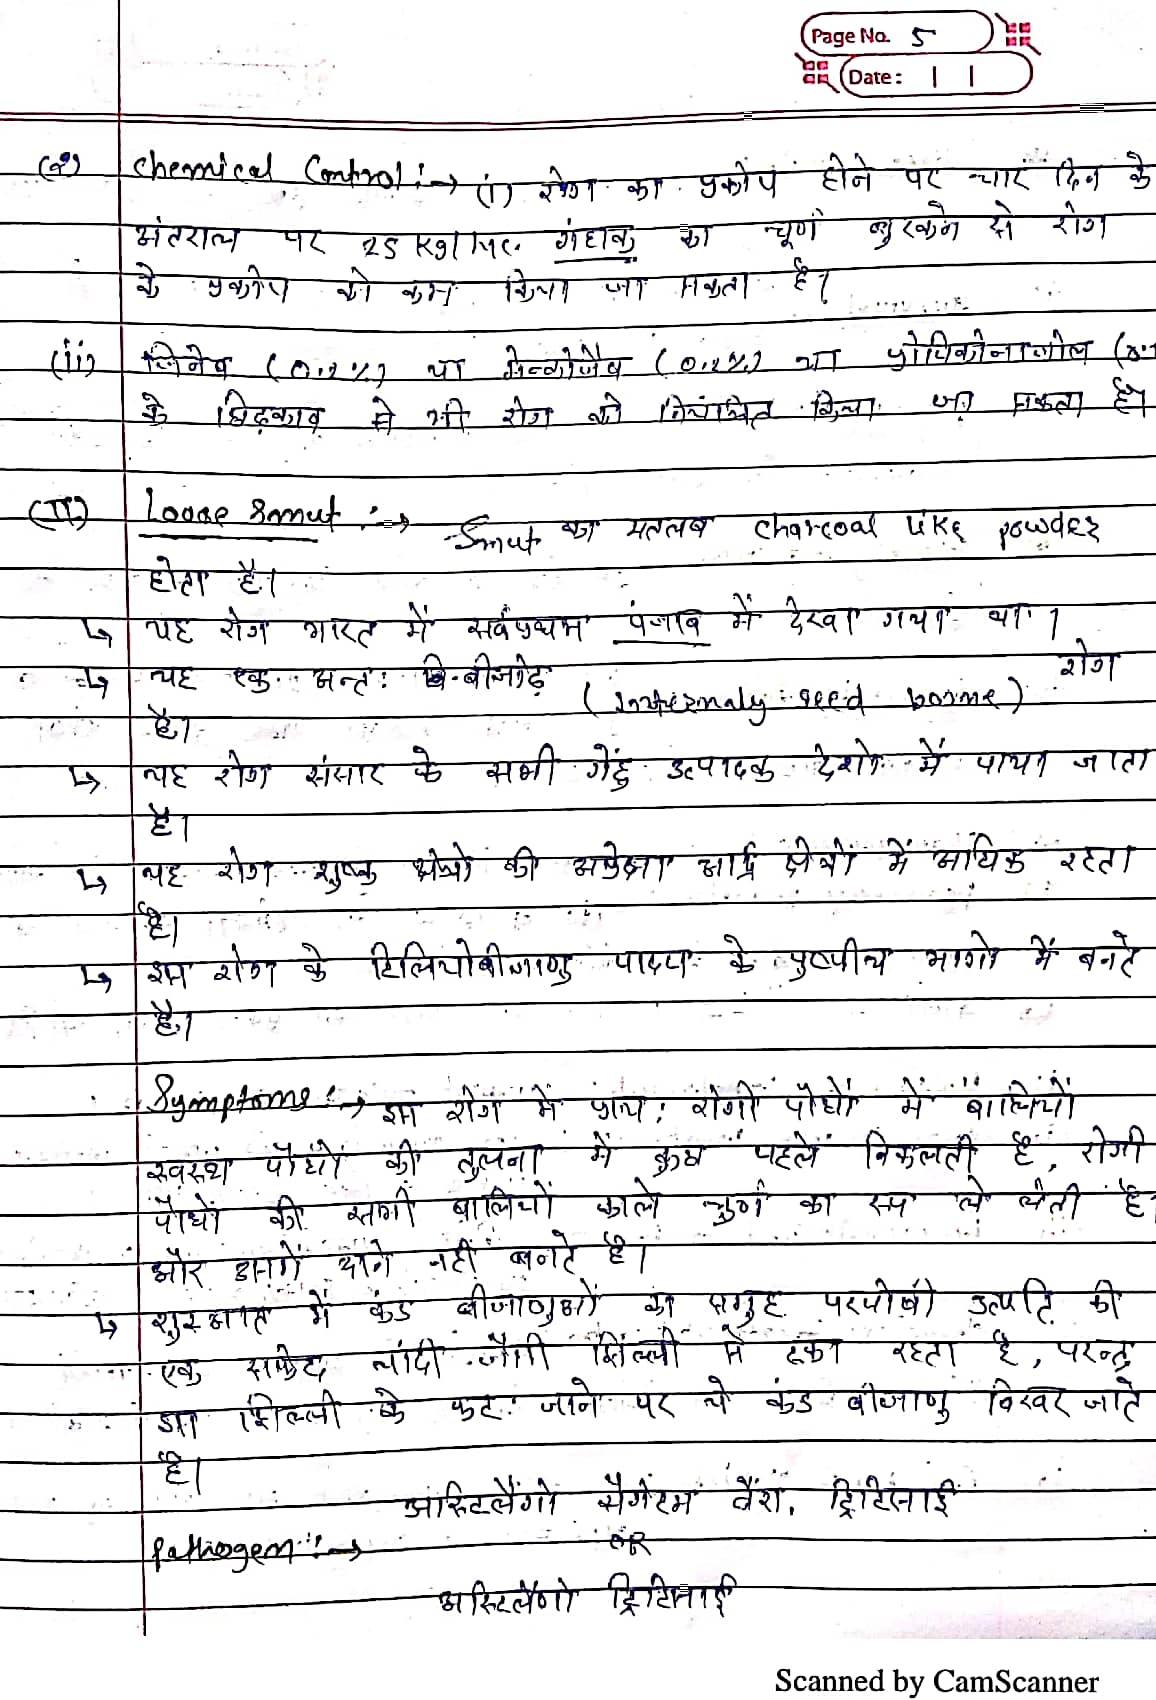 Page No. 5
Date: | |
(2) Chemical Control :→ (i) रोग का प्रकोप होने पर चार दिन के
अंतराल पर 25 Kg/ गंधक का चूर्ण बुरकने से रोग
के प्रकोप को कम किया जा सकता है।
(ii) जिनेब (0.2%) या मेन्कोजेब (0.2%) या प्रोपिकोनाजोल (0.1
के छिड़काव से भी रोग को नियंत्रित किया जा सकता है।
(II) Loose Smut :→ Smut का मतलब charcoal like powder
होता है।
↳ यह रोग भारत में सर्वप्रथम पंजाब में देखा गया था।
↳ यह एक अन्तः बीजोढ़ (Internaly seed borne) रोग
है।
↳ यह रोग संसार के सभी गेहूं उत्पादक देशों में पाया जाता
है।
↳ यह रोग शुष्क क्षेत्रों की अपेक्षा आर्द्र क्षेत्रों में अधिक रहता
है।
↳ इस रोग के टिलियोबीजाणु पादप के पुष्पीय भागो में बनते
है।
Symptoms :→ इस रोग में प्राय: रोगी पौधों में बालियाँ
स्वस्थ पौधों की तुलना में कुछ पहले निकलती है, रोगी
पौधों की सभी बालियाँ काले चुर्ण का रूप ले लेती है
और उनमें दाने नहीं बनते है।
↳ शुरुआत में कंड बीजाणुओं का समुह परपोषी उत्पति की
एक सफेद चांदी जैसी झिल्ली से ढका रहता है, परन्तु
इस झिल्ली के फट जाने पर ये कंड बीजाणु बिखर जाते
है।
अस्टिलैगो सैगेटम वैरा. ट्रिटिसाई
Pathogen :→ OR
अस्टिलैगो ट्रिटिसाई
Scanned by CamScanner